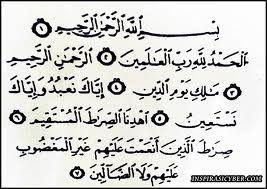 بِسْمِ اللَّهِ الرَّحْمَنِ الرَّحِيمِ ١
الْحَمْدُ لِلَّهِ رَبِّ الْعَالَمِينَ ٢ الرَّحْمَنِ الرَّحِيمِ
٣ مَالِكِ يَوْمِ الدِّينِ ٤ إِيَّاكَ نَعْبُدُ وَإِيَّاكَ
نَسْتَعِينُ ٥ اهْدِنَا الصِّرَاطَ الْمُسْتَقِيمَ ٦
صِرَاطَ الَّذِينَ أَنْعَمْتَ عَلَيْهِمْ غَيْرِ الْمَغْضُوبِ
عَلَيْهِمْ وَلَا الضَّالِّينَ ٧
INSPIRASICYBER.COM